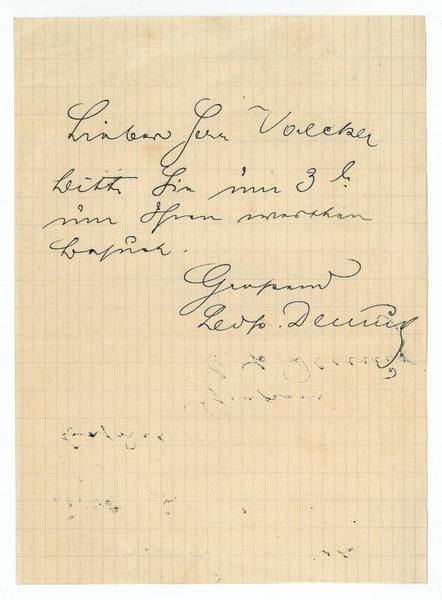 Lieber Herr Voelcker
bitte Sie um 3 h
um Ihren werthen
Besuch.
Grüßend
Leop.